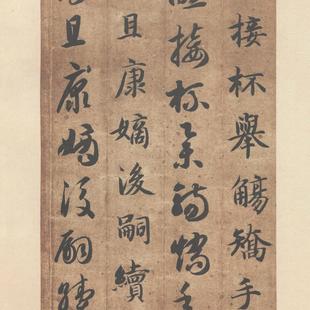 接杯舉觴矯手
接杯舉觴矯手
且康嫡後嗣續
且康嫡後嗣續